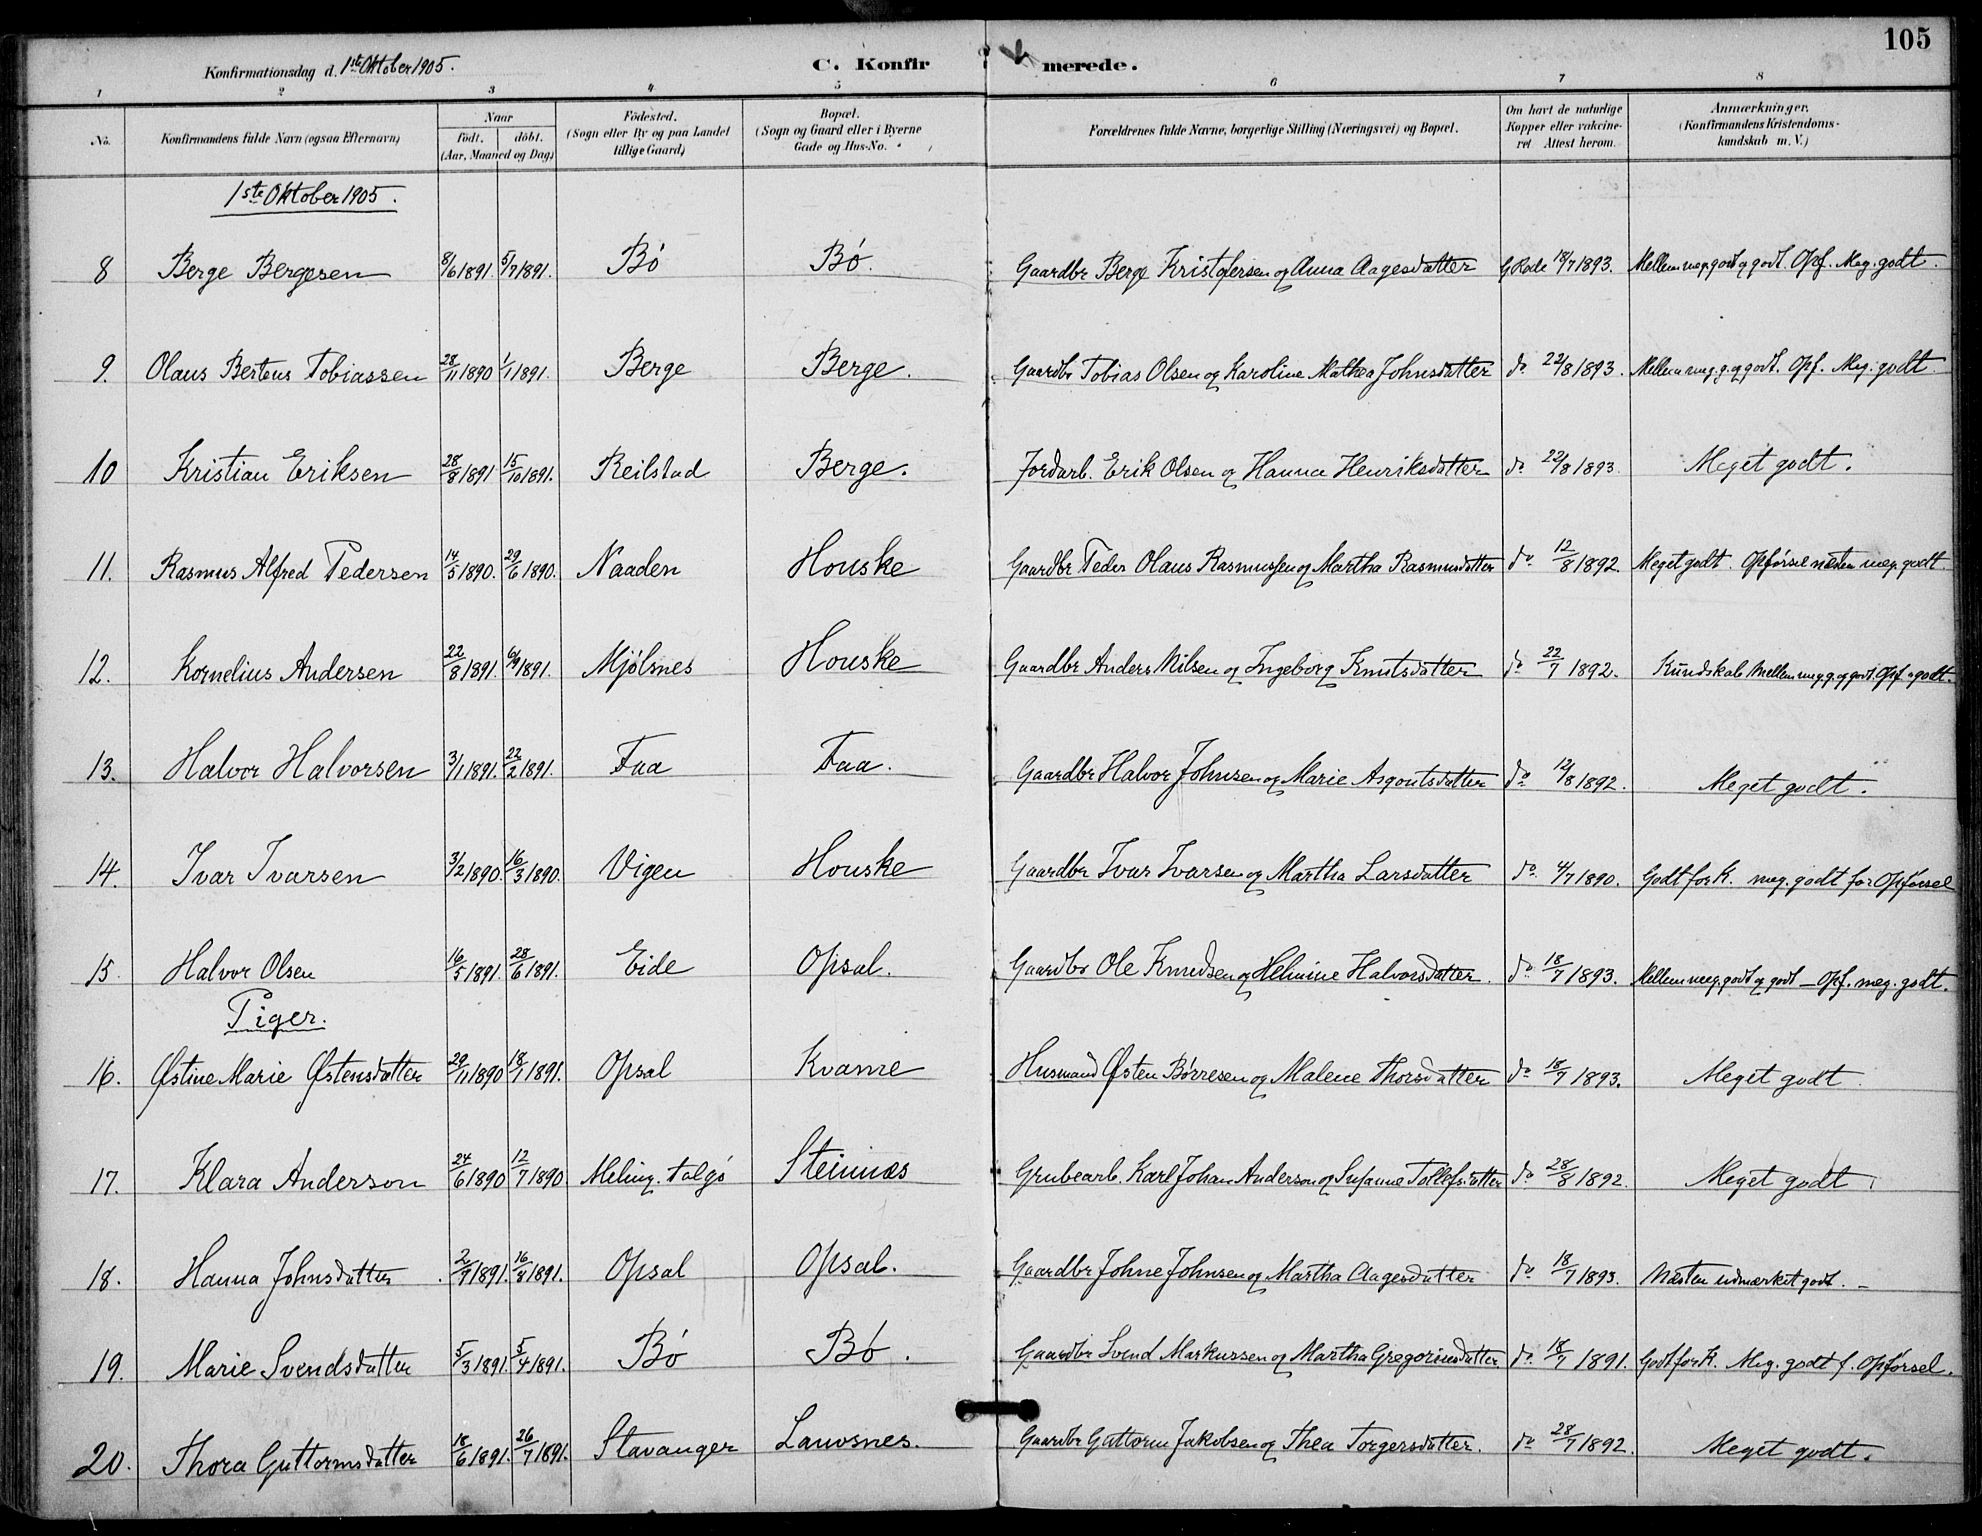 105
Konfirmationsdag d. 1ste Oktober 1905.
C. Konfir merede.
1 2 3 4 5 6 7 8
No. Konfirmandens fulde Navn (ogsaa Efternavn) Naar født. døbt. (Aar, Maaned og Dag) Fødested. (Sogn eller By og paa Landet tillige Gaard) Bopæl. (Sogn og Gaard eller i Byerne Gade og Hus-No. Forældrenes fulde Navne, borgerlige Stilling (Næringsvei) og Bopæl. Om havt de naturlige Kopper eller vakcineret Attest herom. Anmærkninger. (Konfirmandens Kristendomskundskab m. V.)
1ste Oktober 1905.
8 Berge Bergesen 8/6 1891. 5/7 1891. Bø Bø. Gaardbr Berge Kristofersen og Anna Aagesdatter G Rode 18/7 1893. Mellem meg. godt og godt. Opf. Meg. godt.
9. Olaus Bertens Tobiassen 28/11 1890 1/1 1891. Berge Berge. Gaardbr Tobias Olsen og Karoline Mathea Johnsdatter do 22/8 1893. Mellem meg. g. og godt. Opf. Meg. godt.
10 Kristian Eriksen 28/8 1891 15/10 1891. Reilstad Berge. Jordarb. Erik Olsen og Hanna Henriksdatter do 22/8 1893. Meget godt.
11. Rasmus Alfred Pedersen 14/5 1890. 29/6 1890. Naaden Houske Gaardbr Peder Olaus Rasmussen og Martha Rasmusdatter do 12/8 1892. Meget godt. Opførsel næsten meg. godt.
12. Kornelius Andersen 22/8 1891. 6/9 1891. Mjølsnes Houske Gaardbr Anders Nilsen og Ingeborg Knutsdatter do 22/7 1892. Kundskab Mellem meg. g. og godt. Opf. godt.
13. Halvor Halvorsen 3/1 1891. 22/2 1891. Faa Faa. Gaardbr Halvor Johnsen og Marie Asgoutsdatter do 12/8 1892. Meget godt.
14. Ivar Ivarsen 3/2 1890. 16/3 1890. Vigen Houske Gaardbr Ivar Ivarsen og Martha Larsdatter do 4/7 1890. Godt for K. meg. godt for Opførsel
15. Halvor Olsen 16/5 1891. 28/6 1891. Eide Opsal. Gaardbr Ole Knudsen og Helmine Halvorsdatter. do 18/7 1893. Mellem meg. godt og godt – Opf. meg. godt.
Piger.
16. Østine Marie Østensdatter 29/11 1890 18/1 1891. Opsal Kvame Husmand Østen Børresen og Malene Thorsdatter do 18/7 1893. Meget godt
17. Klara Anderson 24/6 1890 12/7 1890 Meling. Talgø Steinnæs Grubearb. Karl Johan Anderson og Susanne Tollefsdatter do 28/8 1892. Meget godt.
18. Hanna Johnsdatter 2/7 1891. 16/8 1891. Opsal Opsal. Gaardbr Johne Johnsen og Martha Aagesdatter do 18/7 1893. Næsten udmærket godt. –
19. Marie Svendsdatter 5/3 1891. 5/4 1891. Bø Bø. Gaardbr Svend Markussen og Martha Gregoriusdatter do 18/7 1891. Godt for K. Meg. godt f. Opførsel.
20. Thora Guttormsdatter 18/6 1891. 26/7 1891. Stavanger Lauvsnes. Gaardbr Guttorm Jakobsen og Thea Torgersdatter. do 28/7 1892. Meget godt.